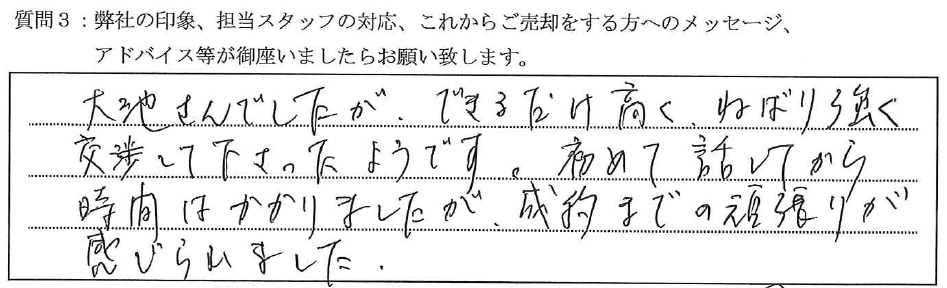 質問３：弊社の印象、担当スタッフの対応、これからご売却をする方へのメッセージ、
アドバイス等が御座いましたらお願い致します。
大池さんでしたが、できるだけ高く、ねばり強く
交渉して下さったようです。初めて話してから
時間はかかりましたが、成約までの頑張りが
感じられました.